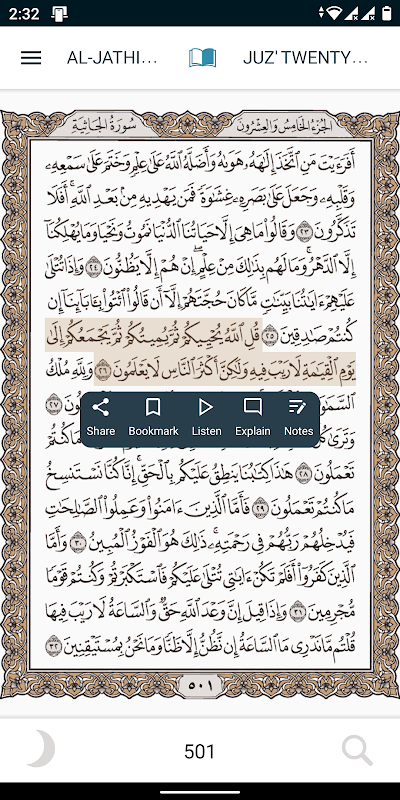 2:32
AL-JATHI...
JUZ' TWENTY...
سُورَةُ الجَاثِيَةِ
الجُزْءُ الخَامِسُ وَالعِشْرُونَ
أَفَرَءَيْتَ مَنِ ٱتَّخَذَ إِلَٰهَهُۥ هَوَىٰهُ وَأَضَلَّهُ ٱللَّهُ عَلَىٰ عِلْمٍ وَخَتَمَ عَلَىٰ سَمْعِهِۦ
وَقَلْبِهِۦ وَجَعَلَ عَلَىٰ بَصَرِهِۦ غِشَٰوَةً فَمَن يَهْدِيهِ مِنۢ بَعْدِ ٱللَّهِ ۚ أَفَلَا
تَذَكَّرُونَ ٢٣ وَقَالُوا۟ مَا هِىَ إِلَّا حَيَاتُنَا ٱلدُّنْيَا نَمُوتُ وَنَحْيَا وَمَا يُهْلِكُنَآ
إِلَّا ٱلدَّهْرُ ۚ وَمَا لَهُم بِذَٰلِكَ مِنْ عِلْمٍ ۖ إِنْ هُمْ إِلَّا يَظُنُّونَ ٢٤ وَإِذَا تُتْلَىٰ
عَلَيْهِمْ ءَايَٰتُنَا بَيِّنَٰتٍ مَّا كَانَ حُجَّتَهُمْ إِلَّآ أَن قَالُوا۟ ٱئْتُوا۟ بِـَٔابَآئِنَآ إِن
كُنتُمْ صَٰدِقِينَ ٢٥ قُلِ ٱللَّهُ يُحْيِيكُمْ ثُمَّ يُمِيتُكُمْ ثُمَّ يَجْمَعُكُمْ إِلَىٰ
يَوْمِ ٱلْقِيَٰمَةِ لَا رَيْبَ فِيهِ وَلَٰكِنَّ أَكْثَرَ ٱلنَّاسِ لَا يَعْلَمُونَ ٢٦ وَلِلَّهِ مُلْكُ
٢٧
Share Bookmark Listen Explain Notes
وَتَرَىٰ
مَا كُنتُمْ
تَعْمَلُونَ ٢٨ هَٰذَا كِتَٰبُنَا يَنطِقُ عَلَيْكُم بِٱلْحَقِّ ۚ إِنَّا كُنَّا نَسْتَنسِخُ
مَا كُنتُمْ تَعْمَلُونَ ٢٩ فَأَمَّا ٱلَّذِينَ ءَامَنُوا۟ وَعَمِلُوا۟ ٱلصَّٰلِحَٰتِ
فَيُدْخِلُهُمْ رَبُّهُمْ فِى رَحْمَتِهِۦ ۚ ذَٰلِكَ هُوَ ٱلْفَوْزُ ٱلْمُبِينُ ٣٠ وَأَمَّا
ٱلَّذِينَ كَفَرُوٓا۟ أَفَلَمْ تَكُنْ ءَايَٰتِى تُتْلَىٰ عَلَيْكُمْ فَٱسْتَكْبَرْتُمْ وَكُنتُمْ قَوْمًا
مُّجْرِمِينَ ٣١ وَإِذَا قِيلَ إِنَّ وَعْدَ ٱللَّهِ حَقٌّ وَٱلسَّاعَةُ لَا رَيْبَ فِيهَا
قُلْتُم مَّا نَدْرِى مَا ٱلسَّاعَةُ إِن نَّظُنُّ إِلَّا ظَنًّا وَمَا نَحْنُ بِمُسْتَيْقِنِينَ ٣٢
٥٠١
501